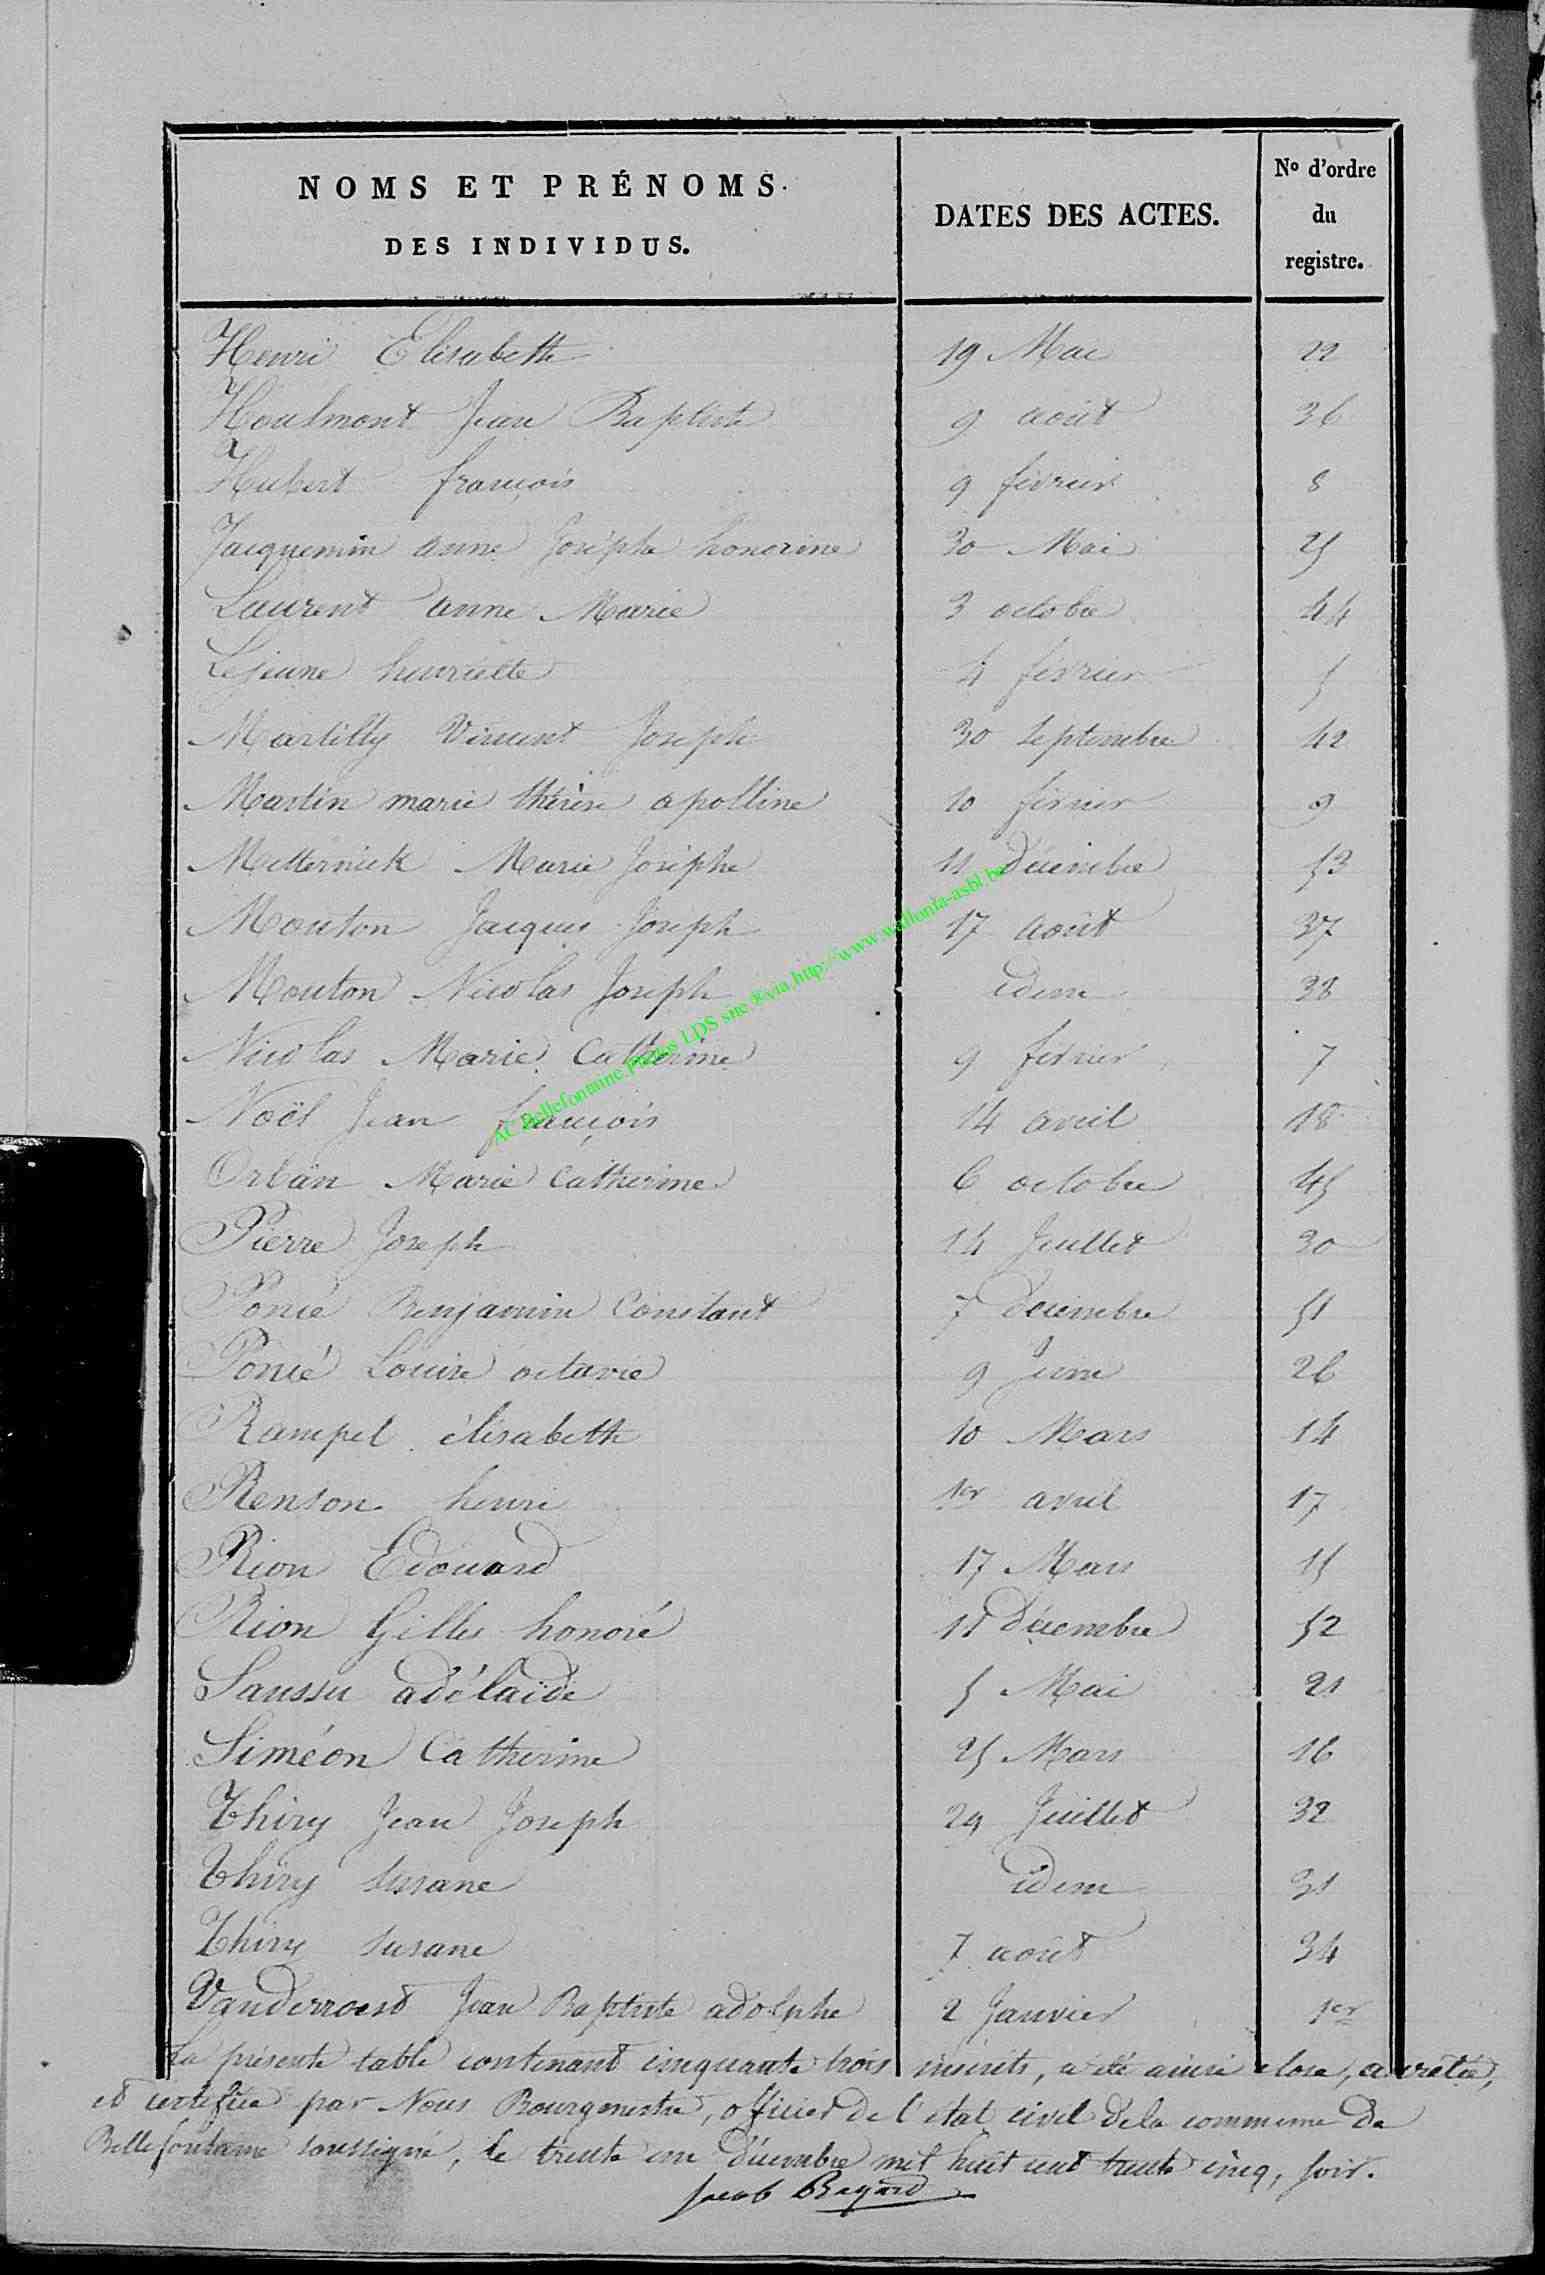 NOMS ET PRÉNOMS
DES INDIVIDUS.
DATES DES ACTES.
No d'ordre
du
registre.
Henri Elisabeth 19 Mai 22
Houlmont Jean Baptiste 9 août 36
Hubert françois 9 février 8
Jacquemin anne Josèphe honorine 30 Mai 25
Laurent anne Marie 3 octobre 44
Lejeune henriette 4 février 5
Martilly Vincent Joseph 30 Septembre 42
Martin marie thérèse apolline 10 février 9
Metternick Marie Josèphe 11 Décembre 53
Mouton Jacques Joseph 17 août 37
Mouton Nicolas Joseph idem 38
Nicolas Marie Catherine 9 février 7
Noël Jean françois 14 avril 18
Orban Marie Catherine 6 octobre 45
Pierre Joseph 14 Juillet 30
Poncé Benjamin Constant 7 décembre 51
Poncé Louise octavie 9 Juin 26
Rampel élisabeth 10 Mars 14
Renson henri 1er avril 17
Rion Edouard 17 Mars 15
Rion Gilles honoré 11 Décembre 52
Saussu adélaïde 5 Mai 21
Siméon Catherine 25 Mars 16
Thiry Jean Joseph 29 Juillet 32
Thiry Susane idem 31
Thiry Susane 7 août 34
Vanderroest Jean Baptiste adolphe 2 Janvier 1er
La présente table contenant cinquante trois inscrits, a été ainsi close, arretée,
et certifiée par Nous Bourgmestre, officier de l'état civil de la commune de
Bellefontaine soussigné, le trente un Décembre mil huit cent trente cinq, soir.
Jacob Bayard
AC Bellefontaine Photos LDS snc ®via http://www.wallonia-asbl.be